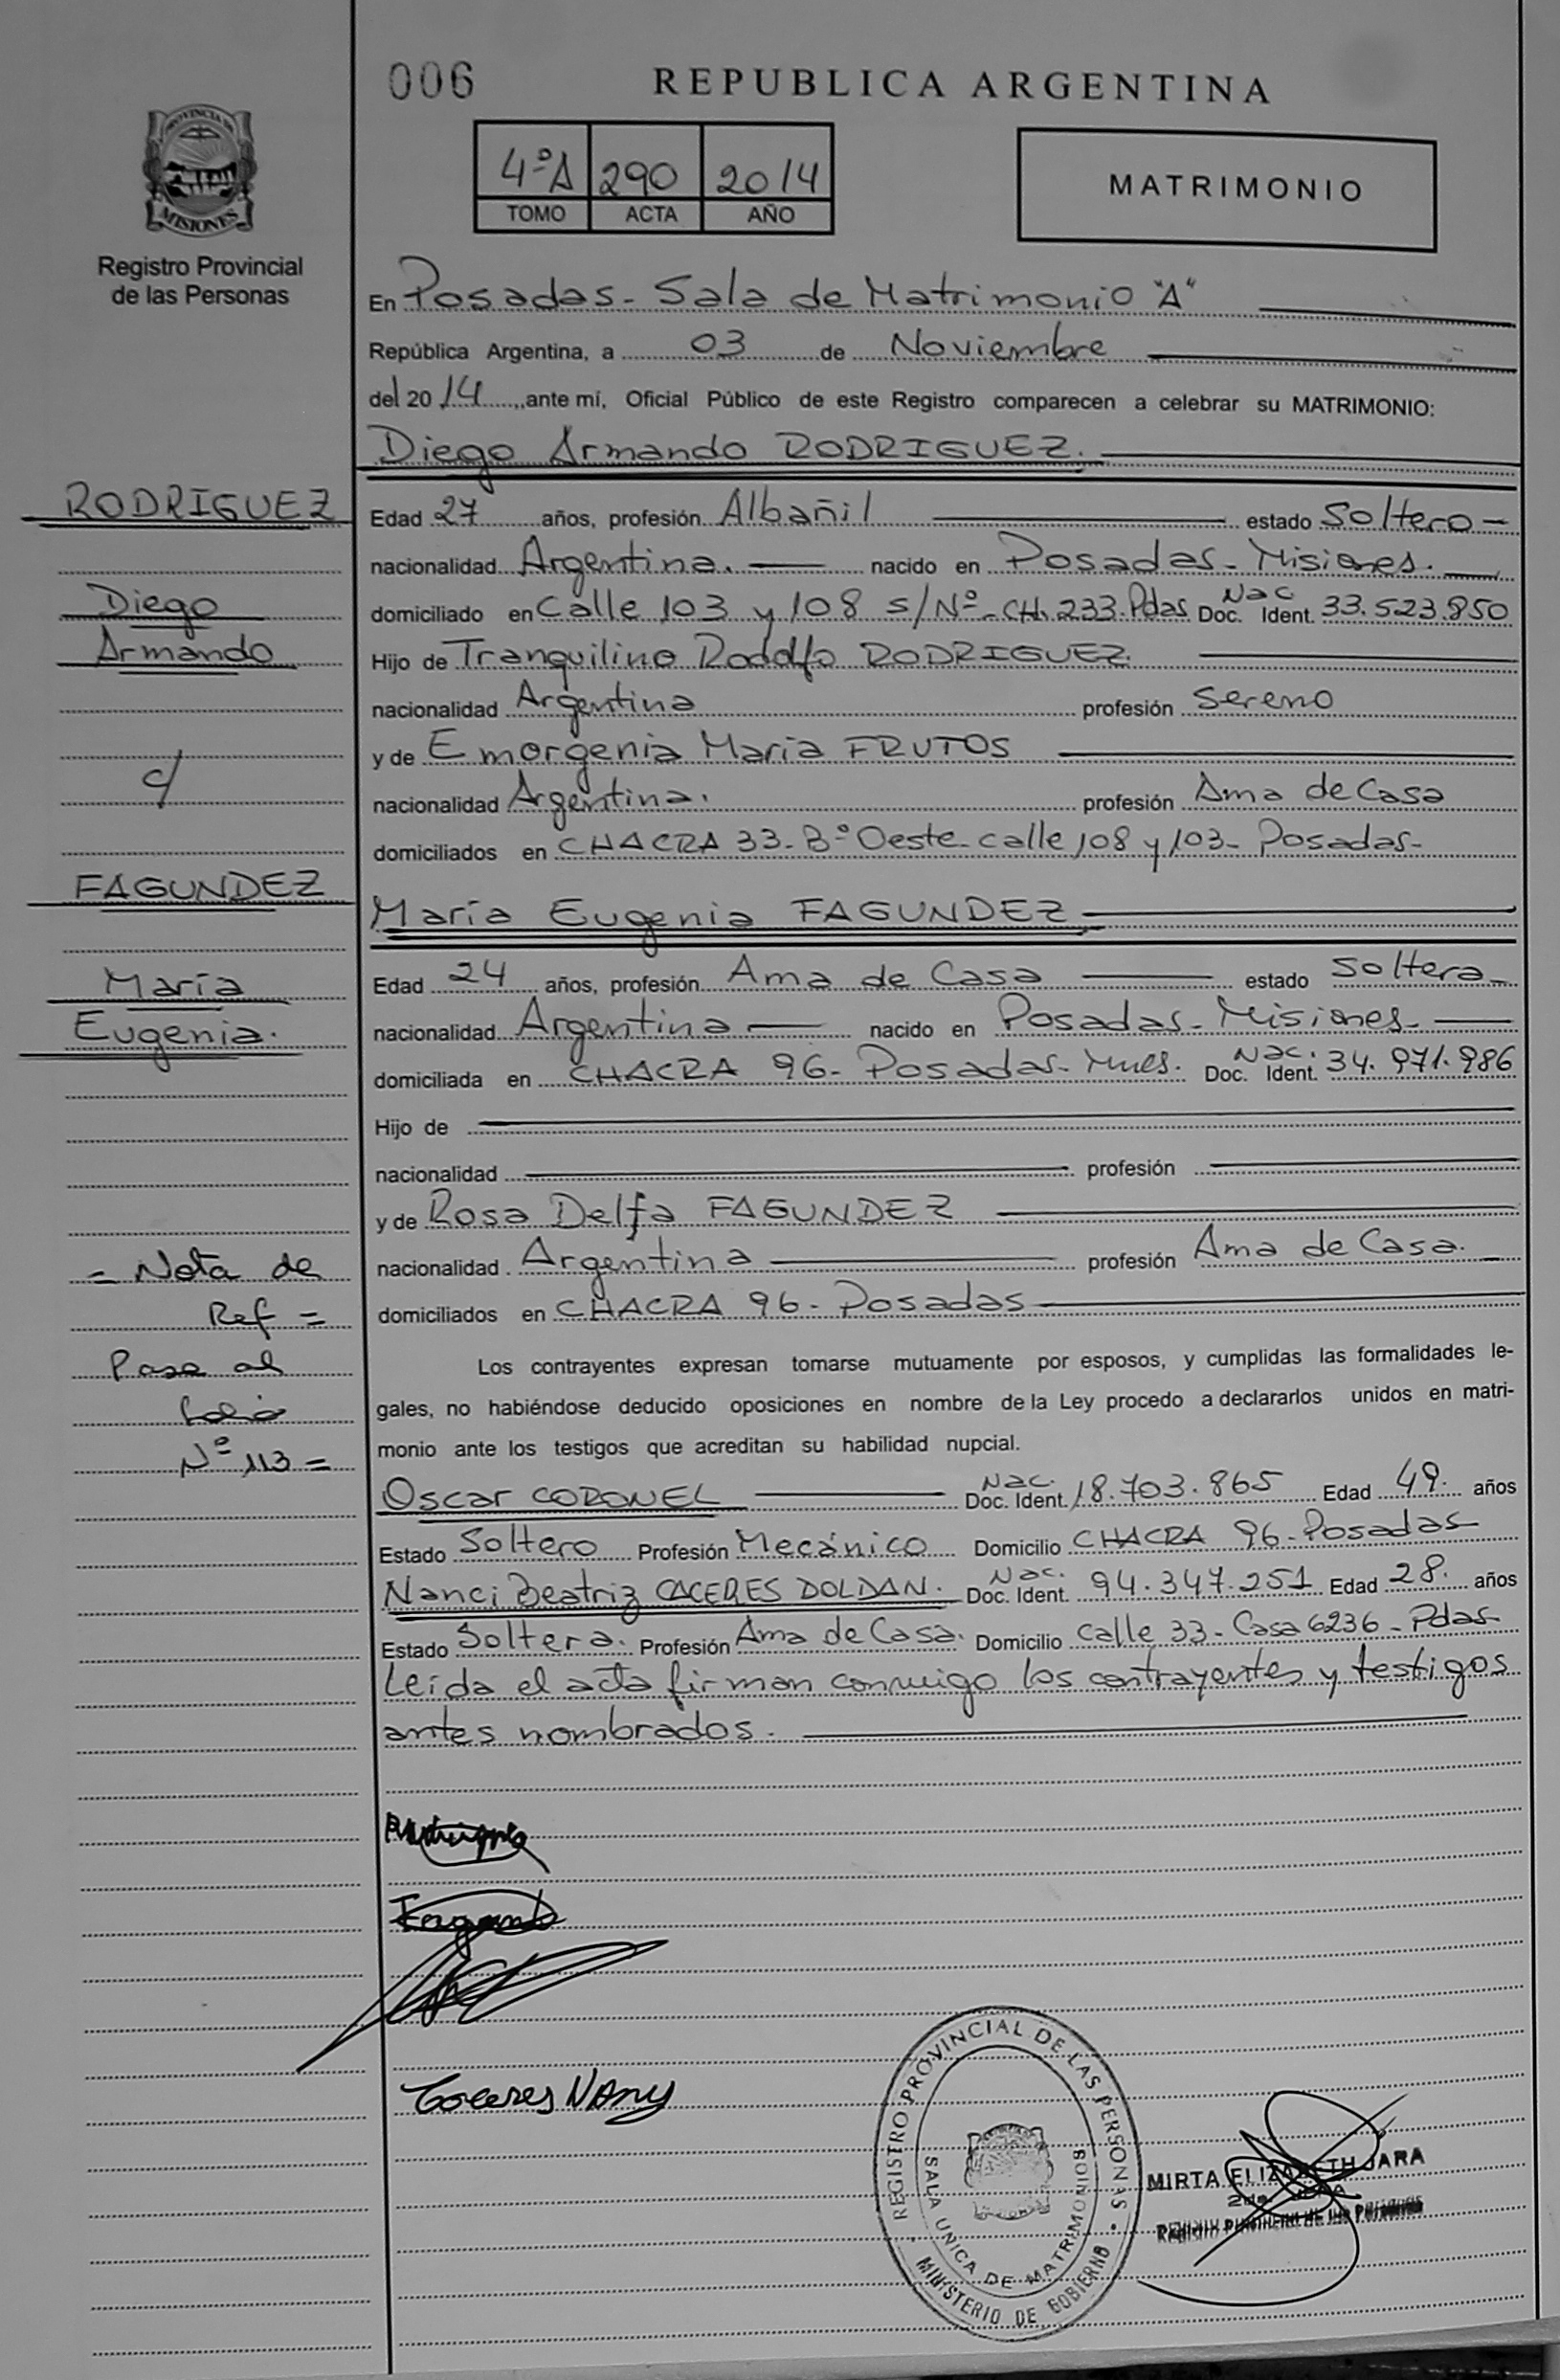 006
REPUBLICA ARGENTINA
PROVINCIA DE
MISIONES
Registro Provincial
de las Personas
4ºA 290 2014
TOMO ACTA AÑO
MATRIMONIO
En Posadas - Sala de Matrimonio "A"
República Argentina, a 03 de Noviembre
del 2014, ante mí, Oficial Público de este Registro comparecen a celebrar su MATRIMONIO:
Diego Armando RODRIGUEZ.
RODRIGUEZ
Diego
Armando
c/
FAGUNDEZ
María
Eugenia.
= Nota de
Ref =
Pasa al
folio
Nº 113 =
Edad 27 años, profesión Albañil estado Soltero -
nacionalidad Argentina. nacido en Posadas - Misiones.
domiciliado en Calle 103 y 108 s/Nº - CH. 233. Pdas Doc. Nac Ident. 33.523.850
Hijo de Tranquilino Rodolfo RODRIGUEZ.
nacionalidad Argentina profesión Sereno
y de Emorgenia Maria FRUTOS
nacionalidad Argentina. profesión Ama de Casa
domiciliados en CHACRA 33 - Bº Oeste - calle 108 y 103 - Posadas -
María Eugenia FAGUNDEZ
Edad 24 años, profesión Ama de Casa estado Soltera -
nacionalidad Argentina nacido en Posadas - Misiones -
domiciliada en CHACRA 96 - Posadas - Mnes. Doc. Nac. Ident. 34.971.986
Hijo de
nacionalidad profesión
y de Rosa Delfa FAGUNDEZ
nacionalidad Argentina profesión Ama de Casa.
domiciliados en CHACRA 96 - Posadas
Los contrayentes expresan tomarse mutuamente por esposos, y cumplidas las formalidades le-
gales, no habiéndose deducido oposiciones en nombre de la Ley procedo a declararlos unidos en matri-
monio ante los testigos que acreditan su habilidad nupcial.
Oscar CORONEL Doc. Nac. Ident. 18.703.865 Edad 49. años
Estado Soltero Profesión Mecánico Domicilio CHACRA 96 - Posadas
Nanci Beatriz CACERES DOLDAN. Doc. Nac. Ident. 94.347.251 Edad 28. años
Estado Soltera. Profesión Ama de Casa. Domicilio calle 33 - Casa 6236 - Pdas
Leída el acta firman conmigo los contrayentes y testigos
antes nombrados.
Caceres Nancy
REGISTRO PROVINCIAL DE LAS PERSONAS
SALA UNICA DE MATRIMONIOS
MINISTERIO DE GOBIERNO
MIRTA ELIZABETH JARA